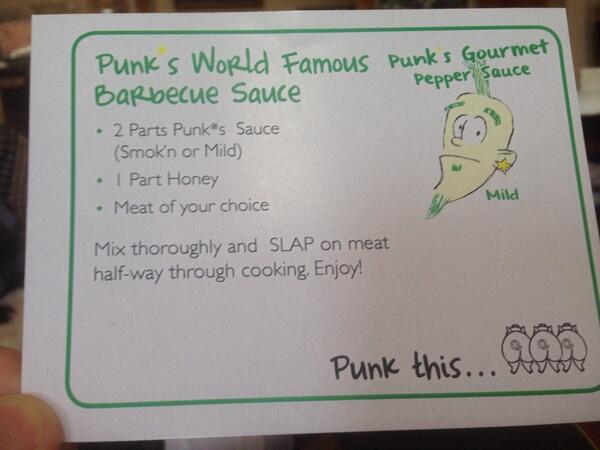 Punk*s World Famous
Barbecue Sauce
• 2 Parts Punk*s Sauce
(Smok'n or Mild)
• 1 Part Honey
• Meat of your choice
Mix thoroughly and SLAP on meat
half-way through cooking. Enjoy!
Punk*s Gourmet
Pepper Sauce
Mild
Punk this...